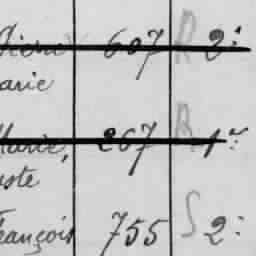 Pierre 607 R 2:
arie
Marie, 267 R 1:
uste
François 755 S 2: